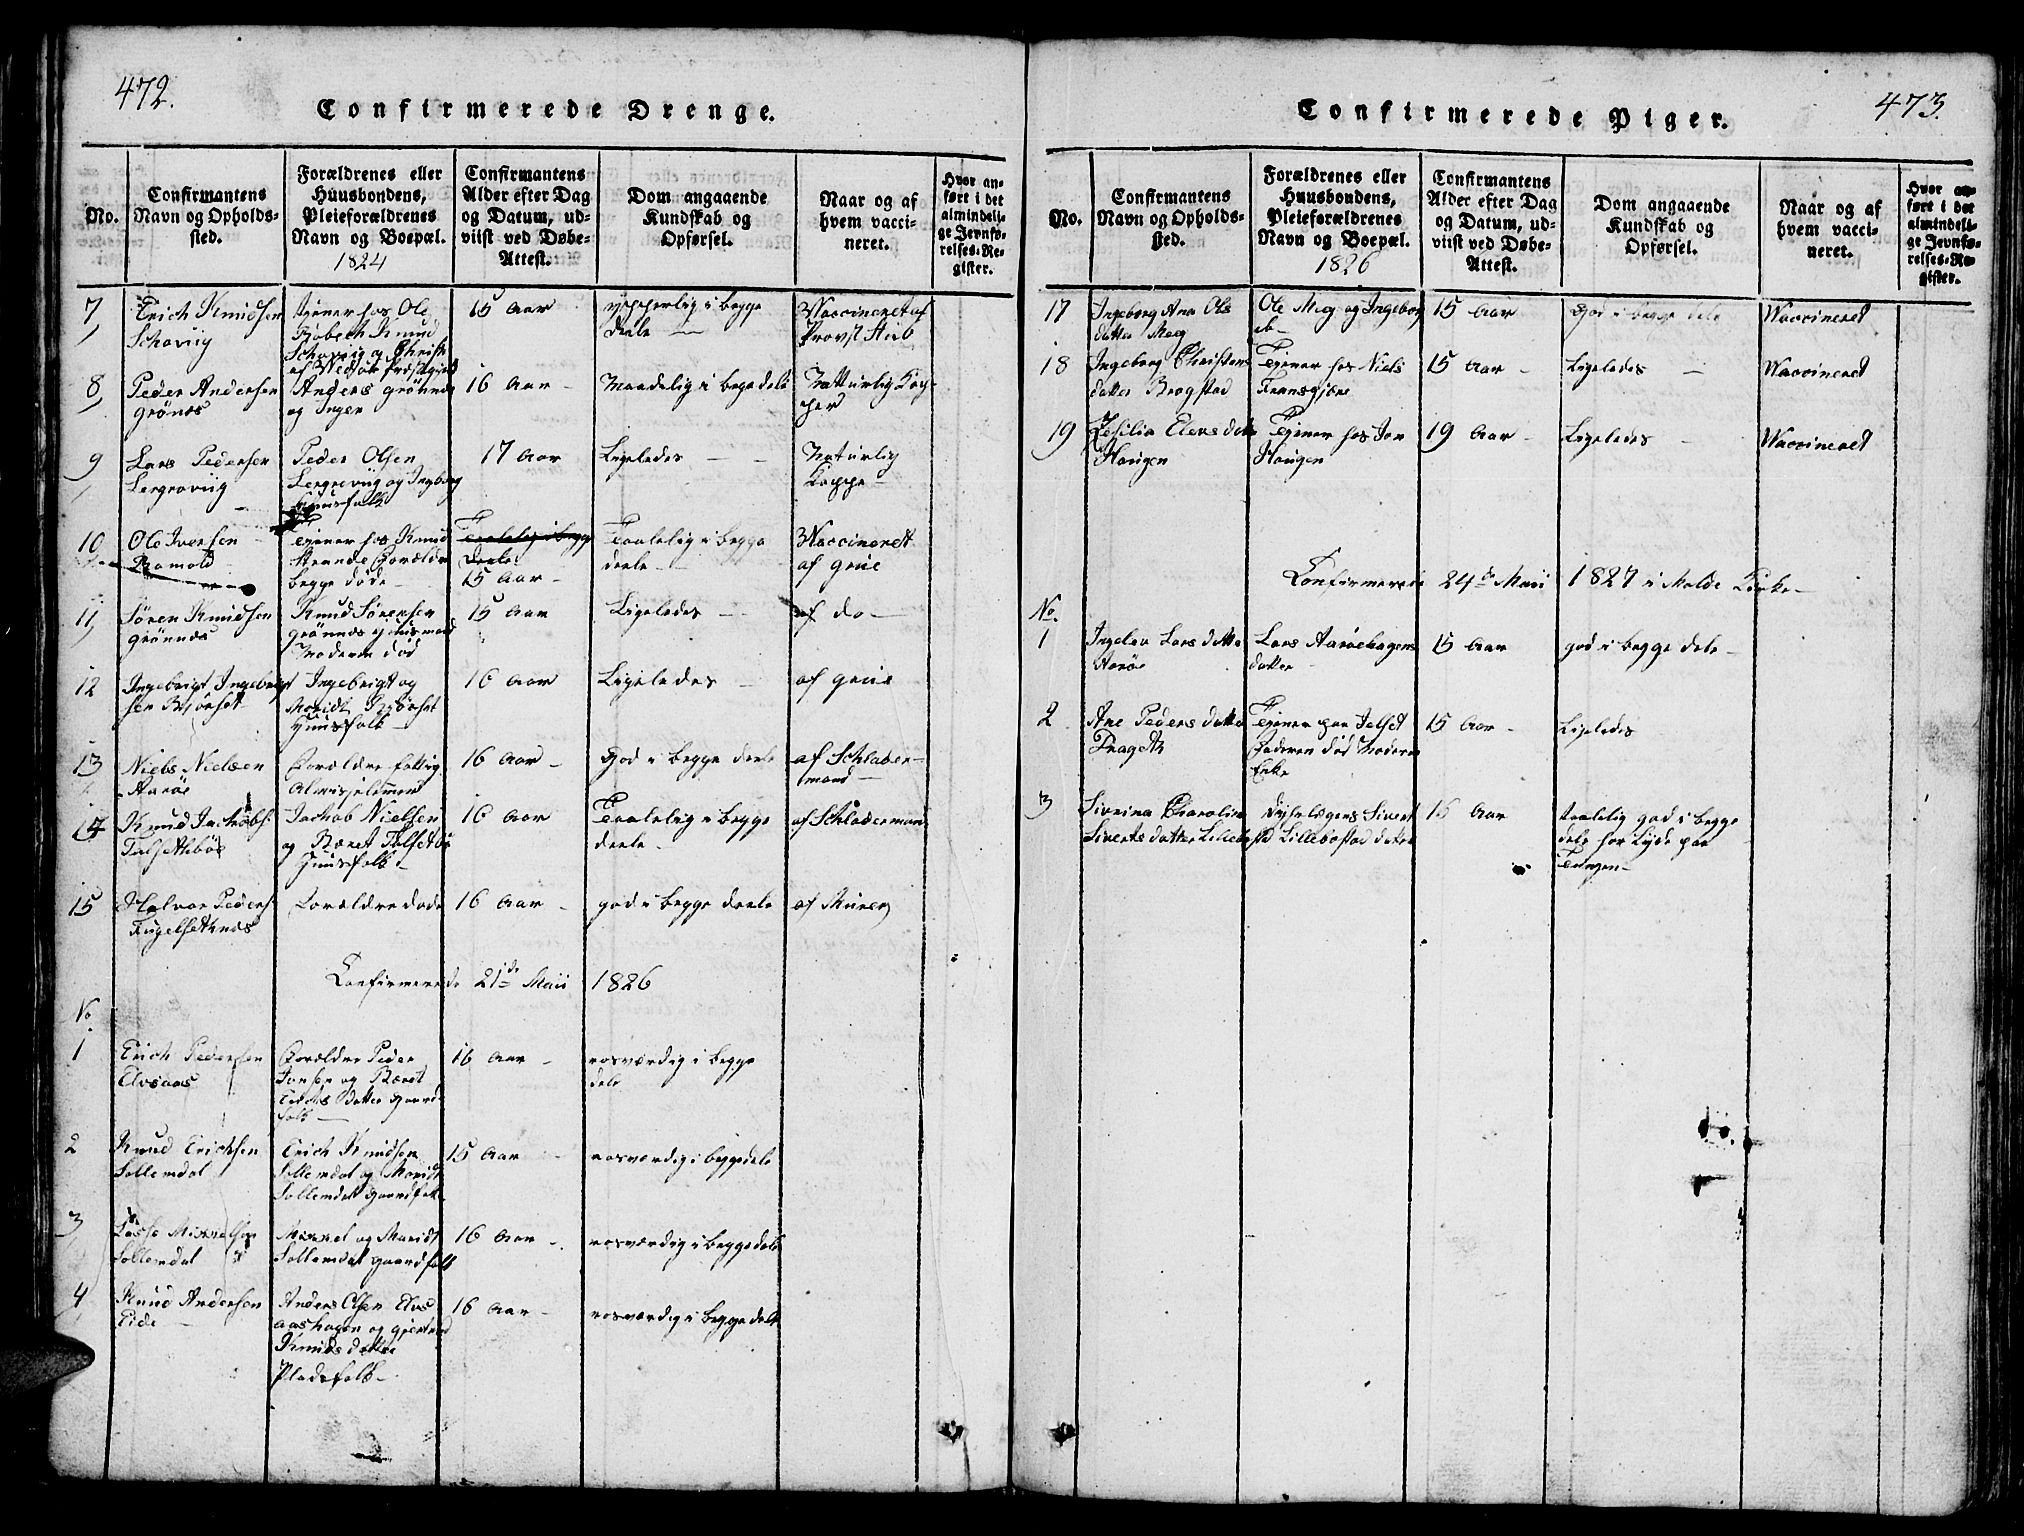 472.
Confirmerede Drenge.
No.
Confirmantens
Navn og Opholds-
sted.
Forældrenes eller
Huusbondens,
Pleieforældrenes
Navn og Boepæl.
1824
Confirmantens
Alder efter Dag
og Datum, ud-
viist ved Døbe-
Attest.
Dom angaaende
Kundskab og
Opførsel.
Naar og af
hvem vacci-
neret.
Hvor an-
ført i det
almindeli-
ge Jevnfø-
relses-Re-
gister.
7
Erich Knudsen
Schoviig
Tjener hos Ole
Knud
15 Aar
ypperlig i begge
deele
Vaccineret af
Provst Stub
8
Peder Andersen
Grönnes
Anders Grönnes
og Inger
16 Aar -
Maadelig i begge deele
Natturlig Kop-
per
9
Lars Pedersen
Lergroviig
Peder Olsen
Lergroviig og Ingeborg
Huusfolk
17 Aar
Ligeledes - -
Naturlig
Koppe -
10
Ole Iversen
Romold
Tjener hos Knud
Strande Forældre
begge døde -
Taalelig i begge
deele
15 Aar -
Taalelig i begge
deele -
Vaccineret
af Grue
11
Sören Knudsen
Grönnes
Knud Sörensen
Grönnes Huusmand
Moderen död
15 Aar
Ligeledes -
af do -
12
Ingebrigt Ingebrigt
sen Björset
Ingebrigt og
Maridt Björset
Huusfolk -
16 Aar
Ligeledes -
af Grue
13
Niels Nielsen
Aaröe
Forældre fattig
Almisselemmer
16 Aar -
God i begge deele
af Schlader-
mand -
14
Knud Jachobs.
Talsethböe
Jachob Nielsen
og Beret Talsetbö
Huusfolk -
16 Aar
Taalelig i begge
deele -
af Schladermand
15
Halvor Peders.
Fugelsethnes
Forældre döde
16 Aar -
god i begge deele
af Murer
Confirmerede 21de Maii 1826
No
1
Erich Pedersen
Elvsaas
Forældre Peder
Jonsen og Beret
Erichs datter Gaard-
folk -
16 Aar -
rosværdig i begge
dele
2
Knud Erichsen
Sollemdal
Erich Knudsen
Sollemdal og Maridt
Sollemdal Gaardfolk -
15 Aar -
rosværdig i begge dele
3
Lasse Mikkelsen
Sollemdal
Mikkel og Maridt
Sollemdal gaardfolk
16 Aar -
rosværdig i begge dele
4
Knud Andersen
Eide -
Anders Olsen Elvs
aashagen og Gjertrud
Knuds datter
Pladsfolk -
16 Aar -
rosværdig i begge dele
473.
Confirmerede Piger.
No.
Confirmantens
Navn og Opholds-
sted.
Forældrenes eller
Huusbondens,
Pleieforældrenes
Navn og Boepæl.
1826
Confirmantens
Alder efter Dag
og Datum, ud-
viist ved Døbe-
Attest.
Dom angaaende
Kundskab og
Opførsel.
Naar og af
hvem vacci-
neret.
Hvor an-
ført i det
almindeli-
ge Jevnfø-
relses-Re-
gister.
17
Ingeborg Ana Ols
datter Meg
Ole Meg og Ingeborg
15 Aar
God i begge dele
Vaccineret
18
Ingeborg Christens
datter Brogstad
Tjener hos Niels
15 Aar -
Ligeledes -
Vaccineret
19
Elens datter
Hougen
Tjener hos Jon
Hougen
19 Aar -
Ligeledes -
Vaccineret
Confirmerede 24de Maii 1827 i Molde Kirke -
No.
1
Ingelev Lars datter
Aaröe
Lars Aaröehagens
datter -
15 Aar
god i begge dele -
2
Ane Peders datter
Prageth
Tjener paa Jelset
Faderen död Moderen
Enke
15 Aar -
Ligeledes
3
Siverina Carolina
Siverts datter Lillebo
Sivert
Lillebostad datter
15 Aar
taalelig god i begge
dele har Lyde paa
Tungen -